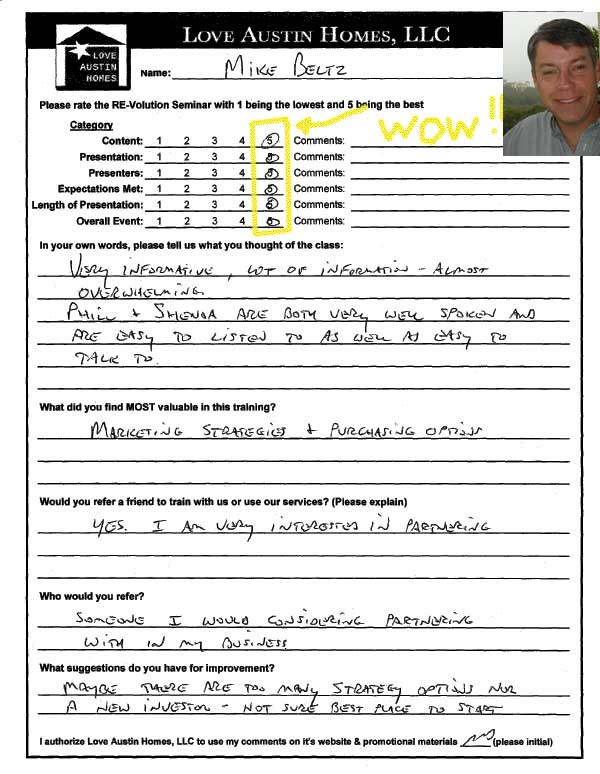 LOVE AUSTIN HOMES, LLC
LOVE
AUSTIN
HOMES
Name: MIKE BELTZ
Please rate the RE-Volution Seminar with 1 being the lowest and 5 being the best
WOW!!
Category
Content: 1 2 3 4 5 Comments:
Presentation: 1 2 3 4 5 Comments:
Presenters: 1 2 3 4 5 Comments:
Expectations Met: 1 2 3 4 5 Comments:
Length of Presentation: 1 2 3 4 5 Comments:
Overall Event: 1 2 3 4 5 Comments:
In your own words, please tell us what you thought of the class:
VERY INFORMATIVE, LOT OF INFORMATION - ALMOST
OVERWHELMING
PHILL & SHENOA ARE BOTH VERY WELL SPOKEN AND
ARE EASY TO LISTEN TO AS WELL AS EASY TO
TALK TO.
What did you find MOST valuable in this training?
MARKETING STRATEGIES & PURCHASING OPTIONS
Would you refer a friend to train with us or use our services? (Please explain)
YES. I AM VERY INTERESTED IN PARTNERING
Who would you refer?
SOMEONE I WOULD CONSIDERING PARTNERING
WITH IN MY BUSINESS
What suggestions do you have for improvement?
MAYBE THERE ARE TOO MANY STRATEGY OPTIONS FOR
A NEW INVESTOR - NOT SURE BEST PLACE TO START
I authorize Love Austin Homes, LLC to use my comments on it's website & promotional materials (please initial)